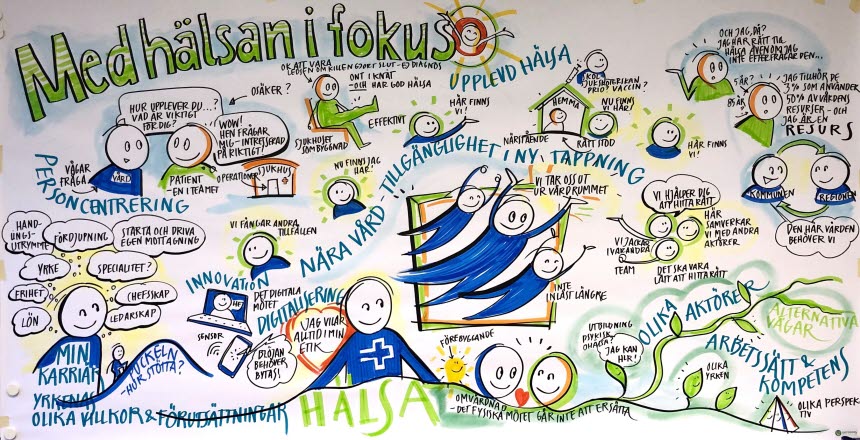 Med hälsan i fokus
OK ATT VARA
LEDSEN OM KILLEN GJORT SLUT - EJ DIAGNOS
OSÄKER?
HUR UPPLEVER DU...?
VAD ÄR VIKTIGT
FÖR DIG?
WOW!
HEN FRÅGAR
MIG - INTRESSERAD
PÅ RIKTIGT!
VÅGAR
FRÅGA
VÅRD
PATIENT
- EN I TEAMET
PERSONCENTRERING
ONT I KNÄT
- OCH HAR GOD HÄLSA
EFFEKTIVT
SJUKHUSET
SOM BYGGNAD
OPERATIONER
SJUKHUS
UPPLEVD HÄLSA
HÄR FINNS
VI!
SKOL
SJUKSKÖTERSKAN
PRIO? VACCIN?
HEMMA
NU FINNS
VI HÄR!
NÄRSTÅENDE
RÄTT STÖD
HÄR FINNS
VI!
OCH JAG, DÅ?
JAG HAR RÄTT TILL
HÄLSA ÄVEN OM JAG
INTE EFTERFRÅGAR DEN...
5 ÅR?
85 ÅR?
JAG TILLHÖR DE
3% SOM ANVÄNDER
50% AV VÅRDENS
RESURSER - OCH
JAG ÄR EN
RESURS
KOMMUNEN
REGIONEN
DEN HÄR VÄRDEN
BEHÖVER VI
NÄRA VÅRD - TILLGÄNGLIGHET I NY TAPPNING
NU FINNS JAG
HÄR!
VI FÅNGAR ANDRA
TILLFÄLLEN
VI TAR OSS UT
UR VÅRDRUMMET
INTE
INLÅST LÄNGRE
VI HJÄLPER DIG
ATT HITTA RÄTT
HÄR
SAMVERKAR
VI MED ANDRA
AKTÖRER
VI JACKAR
I VARANDRA
TEAM
DET SKA VARA
LÄTT ATT HITTA RÄTT
HAND-
LINGS-
UTRYMME
FÖRDJUPNING
STARTA OCH DRIVA
EGEN MOTTAGNING
YRKE
SPECIALITET?
FRIHET
CHEFSKAP
LÖN
LEDARSKAP
MIN
KARRIÄR
PUCKELN
- HUR STÖTTA?
YRKENAS
OLIKA VILLKOR & FÖRUTSÄTTNINGAR
INNOVATION
DET DIGITALA
MÖTET
DIGITALISERING
SENSOR
BLÖJAN
BEHÖVER
BYTAS!
JAG VILAR
ALLTID I MIN
ETIK
HÄLSA
FÖREBYGGANDE
OMVÅRDNAD
- DET FYSISKA MÖTET GÅR INTE ATT ERSÄTTA
UTBILDNING
PSYKISK
OHÄLSA?
JAG KAN
HER!
OLIKA AKTÖRER
ALTERNATIVA
VÄGAR
ARBETSSÄTT &
KOMPETENS
OLIKA
YRKEN
OLIKA PERSPEK-
TIV